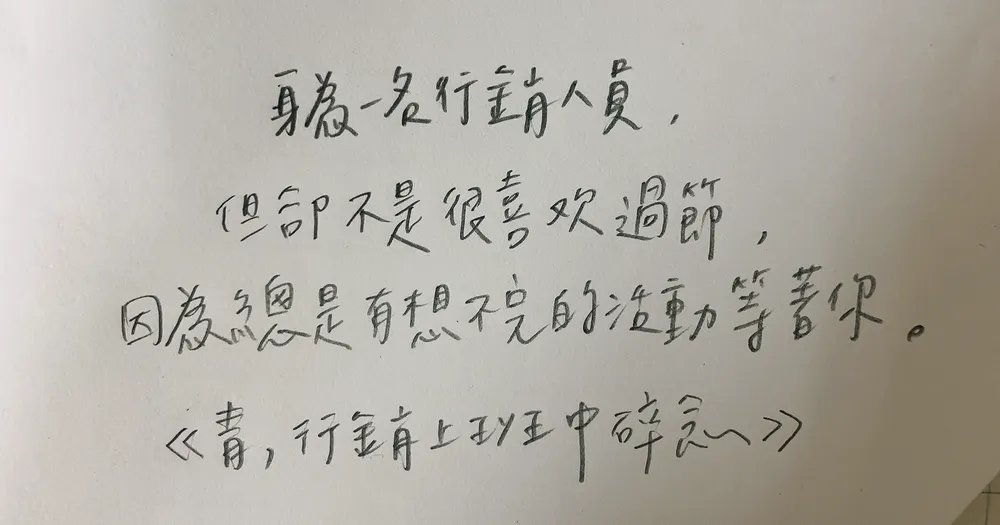 身為一名行銷人員，
但卻不是很喜欢過節，
因為總是有想不完的活動等著你。
《青，行銷上班中碎念》